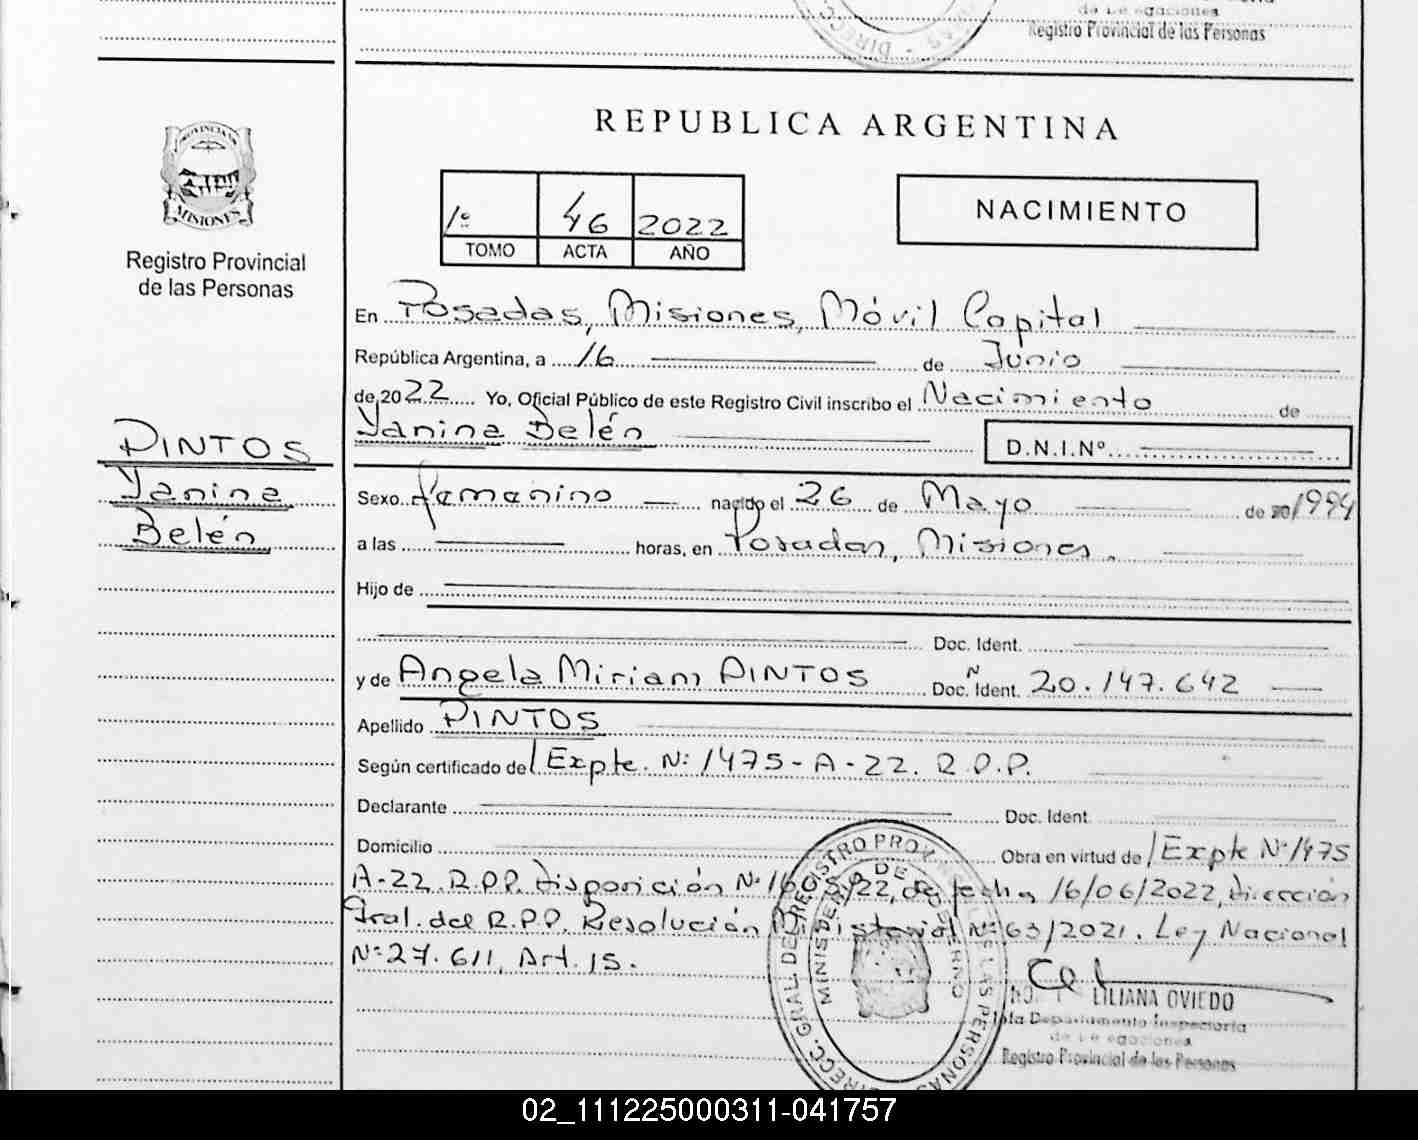 de Delegaciones
Registro Provincial de las Personas
REPUBLICA ARGENTINA
PROVINCIA DE
MISIONES
Registro Provincial
de las Personas
1º 46 2022
TOMO ACTA AÑO
NACIMIENTO
En Posadas, Misiones, Móvil Capital
República Argentina, a 16 de Junio
de 2022 Yo, Oficial Público de este Registro Civil inscribo el Nacimiento de
Yanina Belén D.N.I.Nº
PINTOS
Yanina
Belén
Sexo Femenino nacido el 26 de Mayo de 20/1994
a las horas, en Posadas, Misiones.
Hijo de
Doc. Ident.
y de Angela Miriam PINTOS Doc. Ident. N 20.147.642
Apellido PINTOS
Según certificado de Expte. Nº: 1475-A-22. R.P.P.
Declarante Doc. Ident.
Domicilio Obra en virtud de Expte Nº 1475
A-22. R.P.P. Disposición Nº 22, de fecha 16/06/2022, Dirección
Gral. del R.P.P. Resolución Ministerial Nº 63/2021. Ley Nacional
Nº 27.611, Art. 15.
DIRECC. GRAL DEL REGISTRO PROV. DE LAS PERSONAS
MINISTERIO DE GOBIERNO
LILIANA OVIEDO
Jefa Departamento Inspectoria
de Delegaciones
Registro Provincial de las Personas
02_111225000311-041757